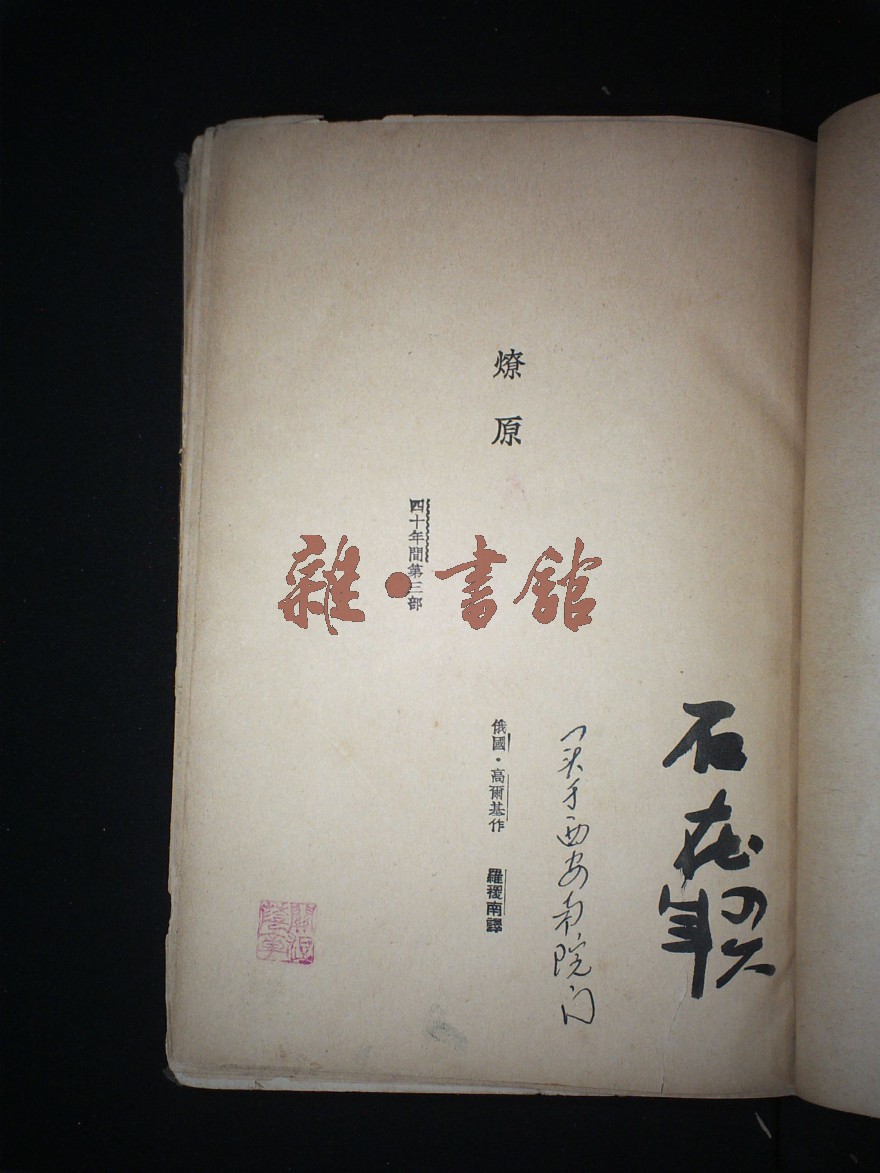 燎原
四十年間第三部
俄國·高爾基作
羅稷南譯
雜·書館
买于西安南院门
石在